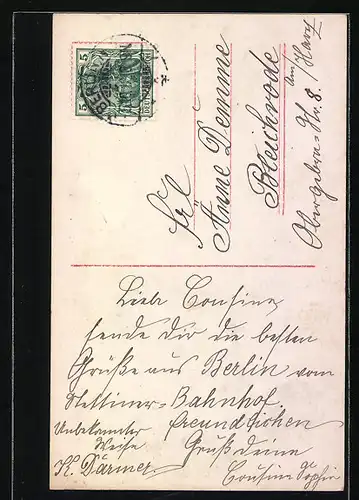 Frl
Änne Demme
Bleichrode
am/Harz
Obergebra-Str. 8.
Liebe Cousine
sende Dir die besten
Grüße aus Berlin vom
Stettiner-Bahnhof.
Unbekannter freundlichen
Weise Gruß Deine
K. Därmer Cousine Sophie
5 5
BERLIN